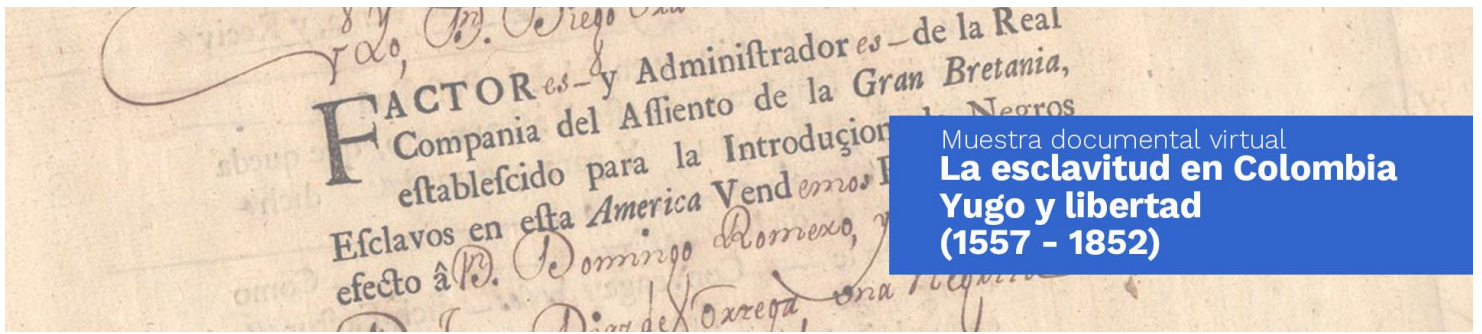 y Dn. Diego
FACTORes-y Adminiſtradores-de la Real
Compania del Aſſiento de la Gran Bretania,
eſtableſcido para la Introduçion de Negros
Eſclavos en eſta America Vendemos
efecto â Dn. Domingo Romero, y
una Negrita
Muestra documental virtual
La esclavitud en Colombia
Yugo y libertad
(1557 - 1852)